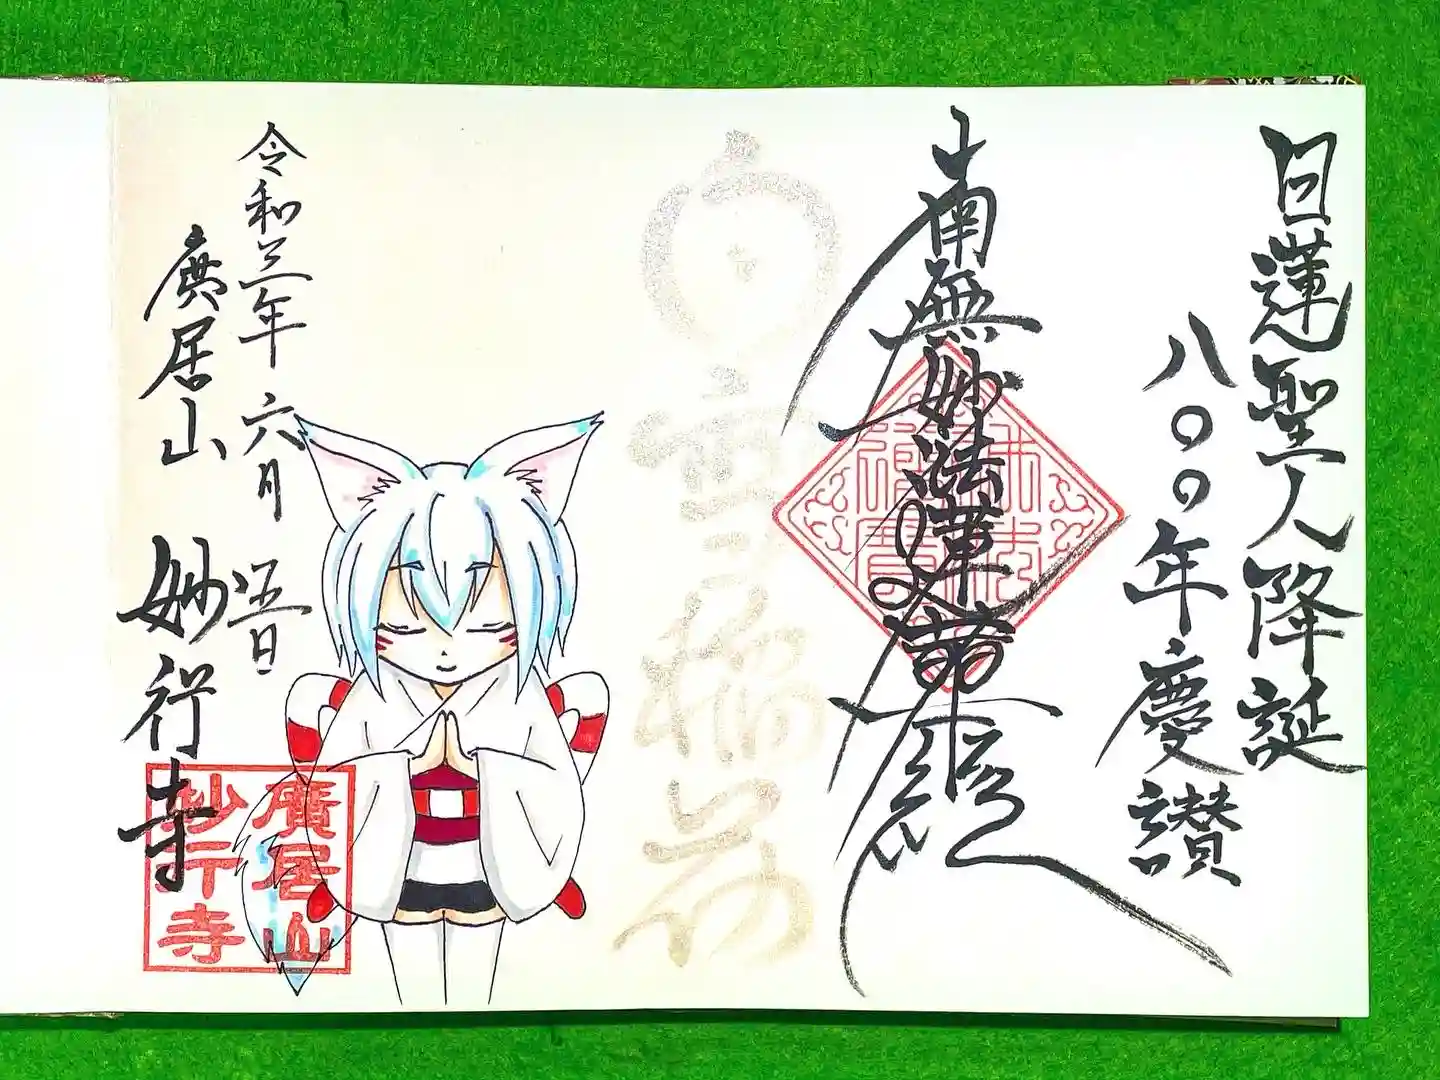 日蓮聖人降誕
八〇〇年慶讃
南無妙法蓮華経
白雪稲荷
令和三年六月五日
廣居山
妙行寺
廣居山
妙行寺